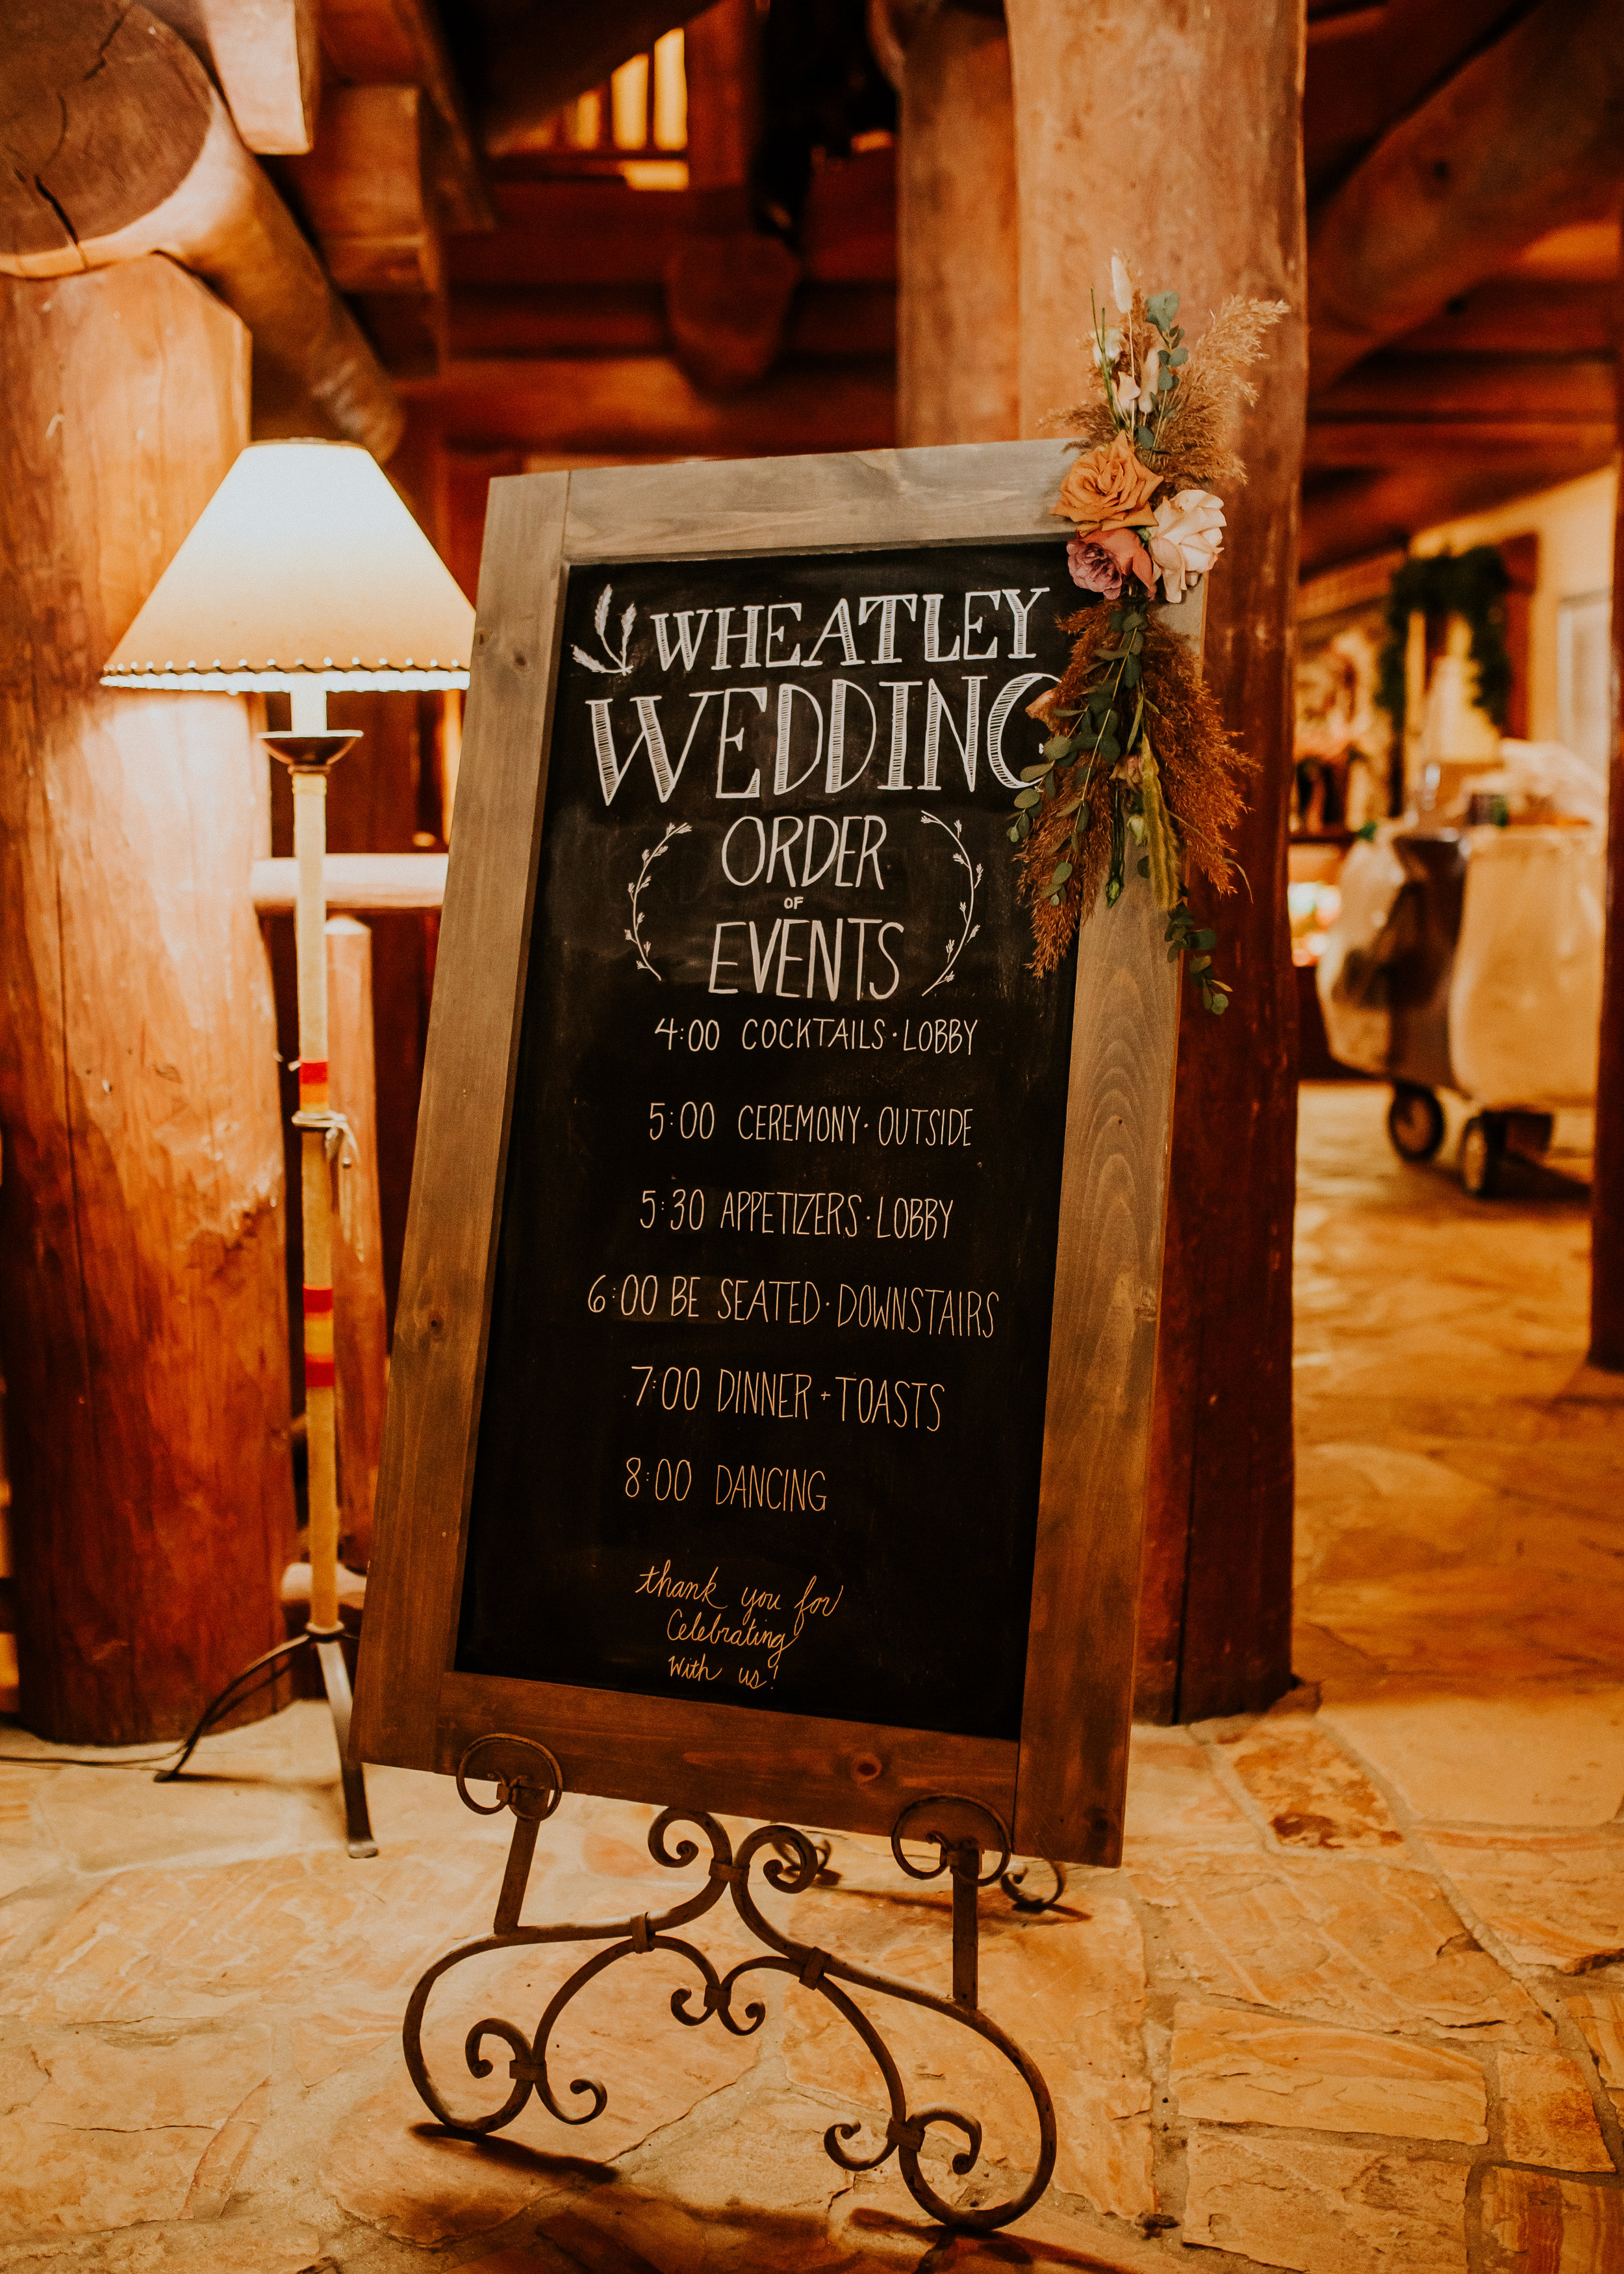 WHEATLEY
WEDDING
ORDER
OF
EVENTS
4:00 COCKTAILS · LOBBY
5:00 CEREMONY · OUTSIDE
5:30 APPETIZERS · LOBBY
6:00 BE SEATED · DOWNSTAIRS
7:00 DINNER + TOASTS
8:00 DANCING
thank you for
Celebrating
With us!